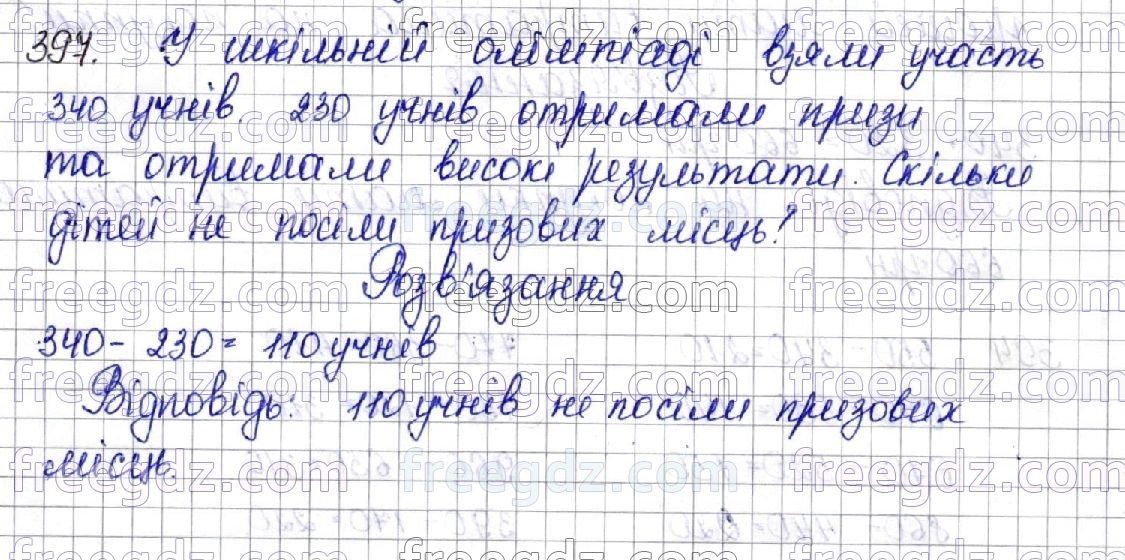 397. У шкільній олімпіаді взяли участь
340 учнів. 230 учнів отримали призи
та отримали високі результати. Скільки
дітей не посіли призових місць?
Розв'язання
340 - 230 = 110 учнів
Відповідь: 110 учнів не посіли призових
місць.
freegdz.com